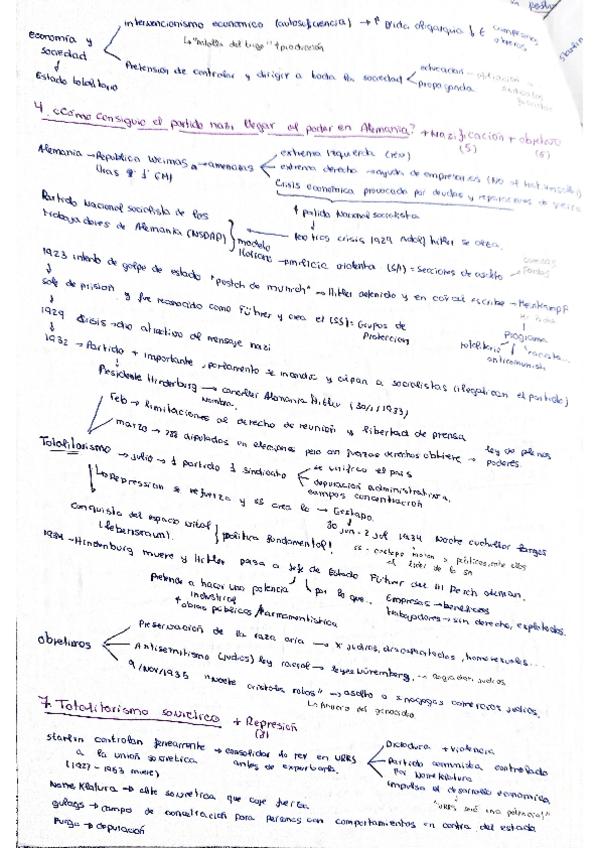 intervencionismo económico (autosuficiencia) → 
"batalla del trigo" + producción
economía y sociedad
Pretensión de controlar y dirigir a toda la sociedad
educación
propaganda
Estado totalitario
4. ¿Cómo consiguió el partido nazi llegar al poder en Alemania? + Nazificación + objetivo
(5) (6)
Alemania → República Weimar → amenazas
extrema izquierda
extrema derecha → ayuda de empresarios
Crisis económica provocada por deudas y reparaciones de guerra
↑ partido Nacional socialista
Partido Nacional socialista de los
trabajadores de Alemania (NSDAP)
tras crisis 1929 Adolf Hitler se
modelo italiano → milicia violenta (SA) = Secciones de asalto
1923 intento de golpe de estado "postch de munich" → Hitler detenido y en cárcel escribe → Mein Kampf
sale de prision y fue reconocido como Führer y crea el (SS) = Grupos de Protección
Programa
totalitario racista...
anticomunista
1929 crisis → dio atractivo al mensaje nazi
1932 → Partido + importante, parlamento se incendia y culpan a socialistas (ilegalizan el partido)
Presidente Hindenburg → canciller Alemania Hitler (30/1/1933)
nombra
feb → limitaciones al derecho de reunión y libertad de prensa
marzo → 288 diputados en elecciones pero con fuerzas derechas obtiene → ley de plenos poderes.
Totalitarismo → julio → 1 partido 1 sindicato
se unifica el país
depuración administrativa.
campos concentración
Represión se refuerza y SS crea la → Gestapo.
30 jun - 2 jul 1934 Noche cuchillos largos
conquista del espacio vital
(Lebensraum).
política fundamental!
1934 → Hindenburg muere y Hitler pasa a jefe de Estado Führer del III Reich alemán.
Pretende a hacer una potencia industrial
+ obras públicas / armamentística
por lo que...
Empresas → beneficios
trabajadores → sin derecho, explotados.
objetivos
Preservación de la raza aria → x judíos, discapacitados, homosexuales...
Antisemitismo (judíos) ley racial → leyes Nüremberg.
9/Nov/1935 "Noche cristales rotos" → asalto a sinagogas comercios judíos.
7. Totalitarismo soviético + Represión
(8)
Stalin controlan férreamente → consolidar la rev en URSS
a la unión soviética antes de exportarla.
(1927 - 1953 muere)
Dictadura + violencia
Partido comunista controlado
por Nomeklatura
impulsa el desarrollo económico
"URSS será una potencia!"
Nomeklatura → élite soviética que coge fuerza.
gulags → campo de concentración para personas con comportamientos en contra del estado
Purga → depuración